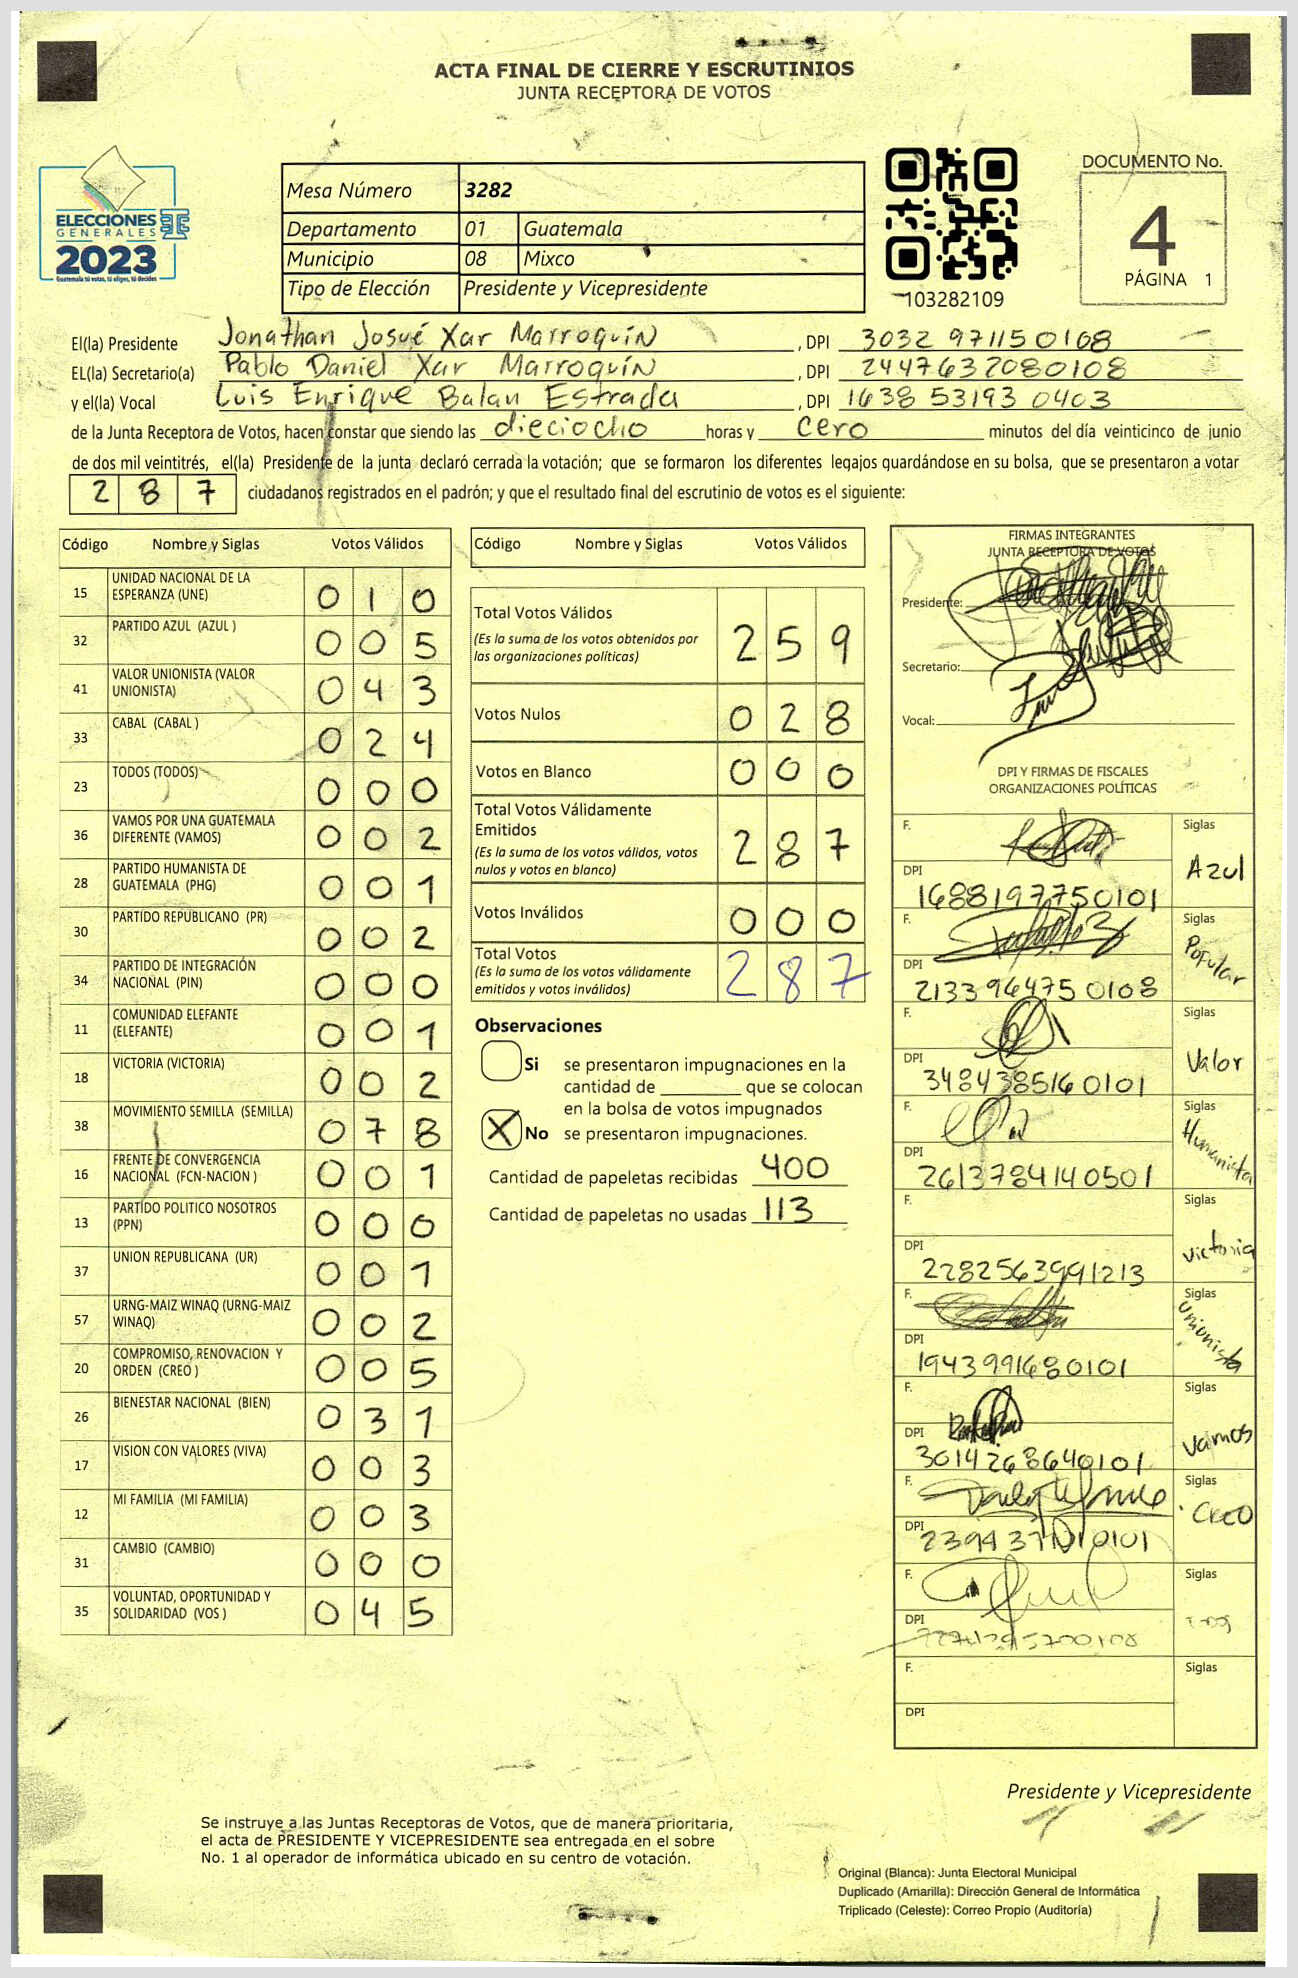 ACTA FINAL DE CIERRE Y ESCRUTINIOS
JUNTA RECEPTORA DE VOTOS
ELECCIONES
GENERALES
2023
Guatemala tú votas, tú eliges, tú decides
Mesa Número 3282
Departamento 01 Guatemala
Municipio 08 Mixco
Tipo de Elección Presidente y Vicepresidente
103282109
DOCUMENTO No.
4
PÁGINA 1
El(la) Presidente Jonathan Josué Xar Marroquín, DPI 3032 97115 0108
EL(la) Secretario(a) Pablo Daniel Xar Marroquín, DPI 2447637080108
y el(la) Vocal Luis Enrique Balan Estrada, DPI 1638 53193 0403
de la Junta Receptora de Votos, hacen constar que siendo las dieciocho horas y cero minutos del día veinticinco de junio
de dos mil veintitrés, el(la) Presidente de la junta declaró cerrada la votación; que se formaron los diferentes legajos guardándose en su bolsa, que se presentaron a votar
287 ciudadanos registrados en el padrón; y que el resultado final del escrutinio de votos es el siguiente:
Código Nombre y Siglas Votos Válidos
15 UNIDAD NACIONAL DE LA ESPERANZA (UNE) 0 1 0
32 PARTIDO AZUL (AZUL ) 0 0 5
41 VALOR UNIONISTA (VALOR UNIONISTA) 0 4 3
33 CABAL (CABAL ) 0 2 4
23 TODOS (TODOS) 0 0 0
36 VAMOS POR UNA GUATEMALA DIFERENTE (VAMOS) 0 0 2
28 PARTIDO HUMANISTA DE GUATEMALA (PHG) 0 0 1
30 PARTIDO REPUBLICANO (PR) 0 0 2
34 PARTIDO DE INTEGRACIÓN NACIONAL (PIN) 0 0 0
11 COMUNIDAD ELEFANTE (ELEFANTE) 0 0 1
18 VICTORIA (VICTORIA) 0 0 2
38 MOVIMIENTO SEMILLA (SEMILLA) 0 7 8
16 FRENTE DE CONVERGENCIA NACIONAL (FCN-NACION ) 0 0 1
13 PARTIDO POLITICO NOSOTROS (PPN) 0 0 0
37 UNION REPUBLICANA (UR) 0 0 1
57 URNG-MAIZ WINAQ (URNG-MAIZ WINAQ) 0 0 2
20 COMPROMISO, RENOVACION Y ORDEN (CREO ) 0 0 5
26 BIENESTAR NACIONAL (BIEN) 0 3 1
17 VISION CON VALORES (VIVA) 0 0 3
12 MI FAMILIA (MI FAMILIA) 0 0 3
31 CAMBIO (CAMBIO) 0 0 0
35 VOLUNTAD, OPORTUNIDAD Y SOLIDARIDAD (VOS ) 0 4 5
Código Nombre y Siglas Votos Válidos
Total Votos Válidos 2 5 9
(Es la suma de los votos obtenidos por
las organizaciones políticas)
Votos Nulos 0 2 8
Votos en Blanco 0 0 0
Total Votos Válidamente
Emitidos 2 8 7
(Es la suma de los votos válidos, votos
nulos y votos en blanco)
Votos Inválidos 0 0 0
Total Votos 2 8 7
(Es la suma de los votos válidamente
emitidos y votos inválidos)
Observaciones
Si se presentaron impugnaciones en la
cantidad de ________ que se colocan
en la bolsa de votos impugnados
X No se presentaron impugnaciones.
Cantidad de papeletas recibidas 400
Cantidad de papeletas no usadas 113
FIRMAS INTEGRANTES
JUNTA RECEPTORA DE VOTOS
Presidente:
Secretario:
Vocal:
DPI Y FIRMAS DE FISCALES
ORGANIZACIONES POLÍTICAS
F. Siglas Azul
DPI 1688197750101
F. Siglas Popular
DPI 2133964750108
F. Siglas Valor
DPI 3484385160101
F. Siglas Humanista
DPI 2613784140501
F. Siglas Victoria
DPI 2282563991213
F. Siglas Unionista
DPI 1943991680101
F. Siglas Vamos
DPI 3014268640101
F. Siglas CREO
DPI
F. Siglas
DPI
F. Siglas
DPI
Presidente y Vicepresidente
Se instruye a las Juntas Receptoras de Votos, que de manera prioritaria,
el acta de PRESIDENTE Y VICEPRESIDENTE sea entregada en el sobre
No. 1 al operador de informática ubicado en su centro de votación.
Original (Blanca): Junta Electoral Municipal
Duplicado (Amarilla): Dirección General de Informática
Triplicado (Celeste): Correo Propio (Auditoría)